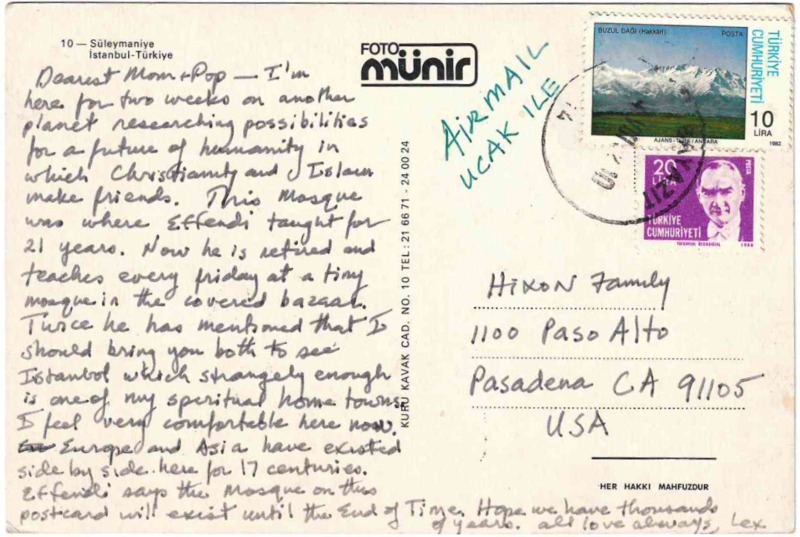 10 — Süleymaniye
İstanbul-Türkiye
Dearest Mom + Pop — I'm
here for two weeks on another
planet researching possibilities
for a future of humanity in
which Christianity and Islam
make friends. This Mosque
was where Effendi taught for
21 years. Now he is retired and
teaches every friday at a tiny
mosque in the covered bazaar.
Twice he has mentioned that I
should bring you both to see
Istanbol which strangely enough
is one of my speritual home towns.
I feel very comfortable here now.
Europe and Asia have existed
side by side here for 17 centuries.
Effendi says the Mosque on this
postcard will exist until the End of Time. Hope we have thousands
of years. all love always, Lex
FOTO
münir
KURU KAVAK CAD. NO. 10 TEL: 21 66 71 - 24 00 24
AIRMAIL
UCAK ILE
BUZUL DAĞI (Hakkâri) POSTA
TÜRKİYE
CUMHURİYETİ
10
LİRA
1982
20
LİRA
POSTA
TÜRKİYE
CUMHURİYETİ
Hixon Family
1100 Paso Alto
Pasadena CA 91105
USA
HER HAKKI MAHFUZDUR